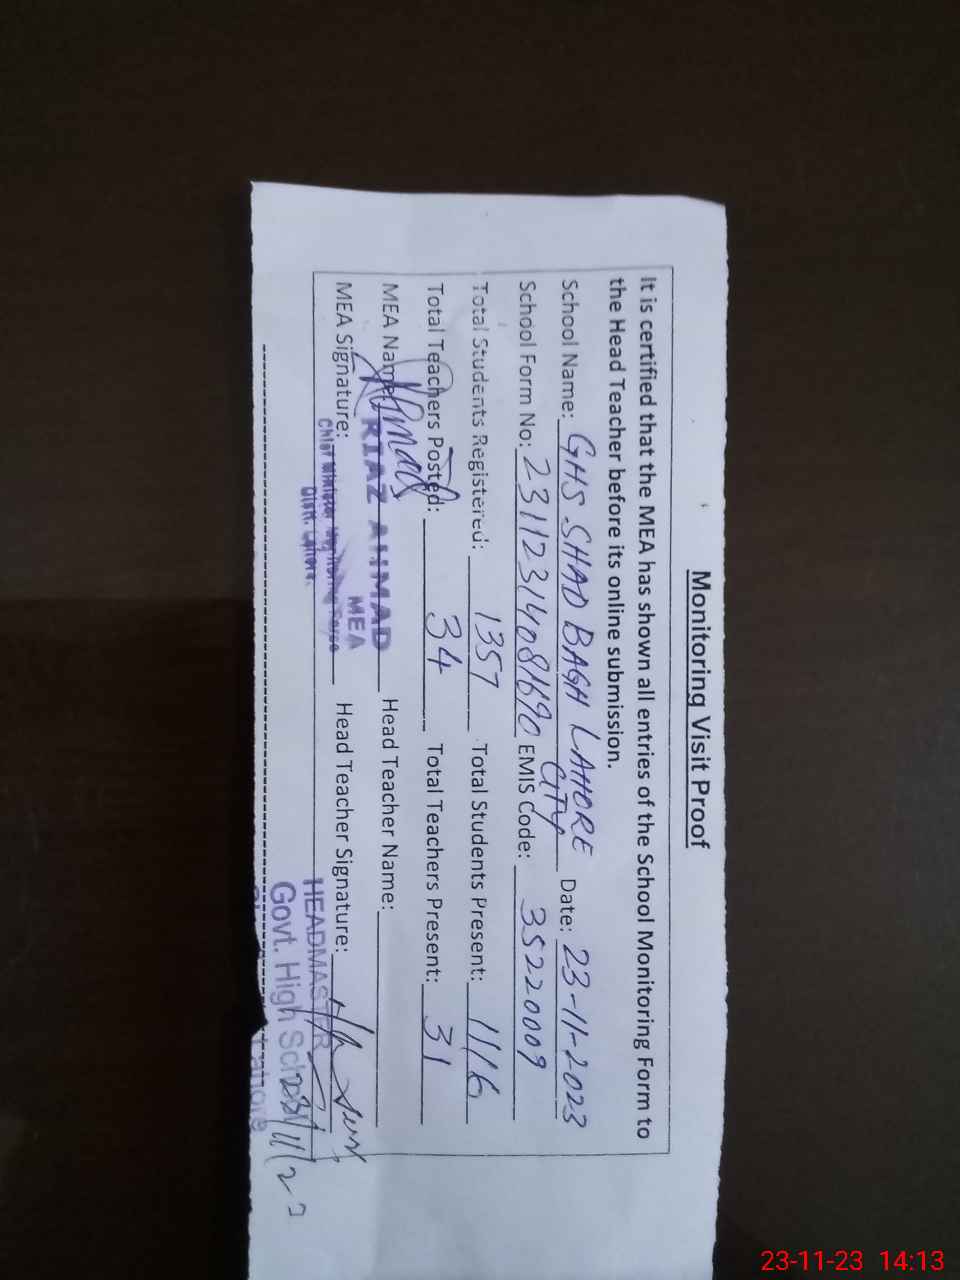 Monitoring Visit Proof
It is certified that the MEA has shown all entries of the School Monitoring Form to
the Head Teacher before its online submission.
School Name: GHS SHAD BAGH LAHORE CITY Date: 23-11-2023
School Form No: 23112314081690 EMIS Code: 35220009
Total Students Registered: 1357 Total Students Present: 1116
Total Teachers Posted: 34 Total Teachers Present: 31
MEA Name: RIAZ AHMAD Head Teacher Name:
MEA
MEA Signature: Ahmad Head Teacher Signature:
Chief Minister Monitoring Force
Distt. Lahore.
HEADMASTER
Govt. High School
Lahore
23/11/23
23-11-23 14:13